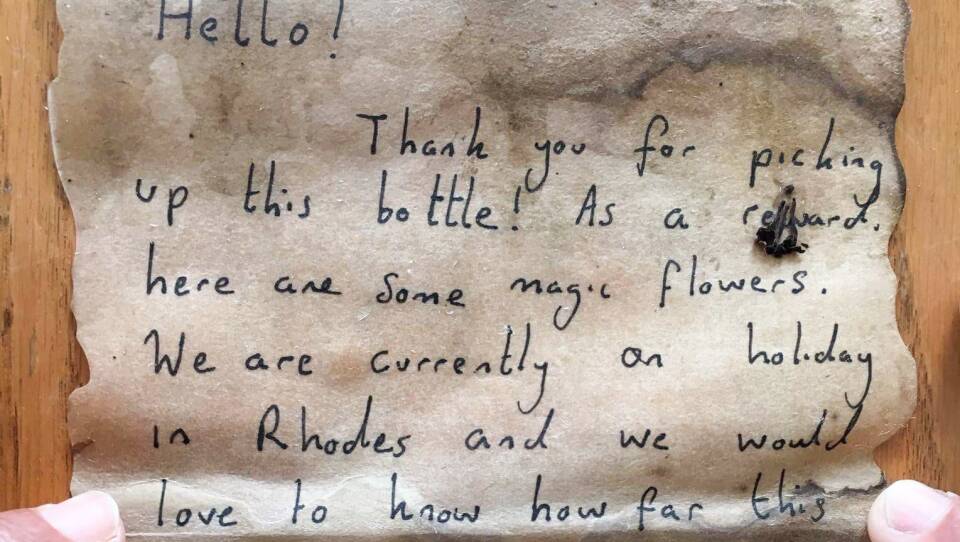 Hello!
Thank you for picking
up this bottle! As a reward,
here are some magic flowers.
We are currently on holiday
in Rhodes and we would
love to know how far this